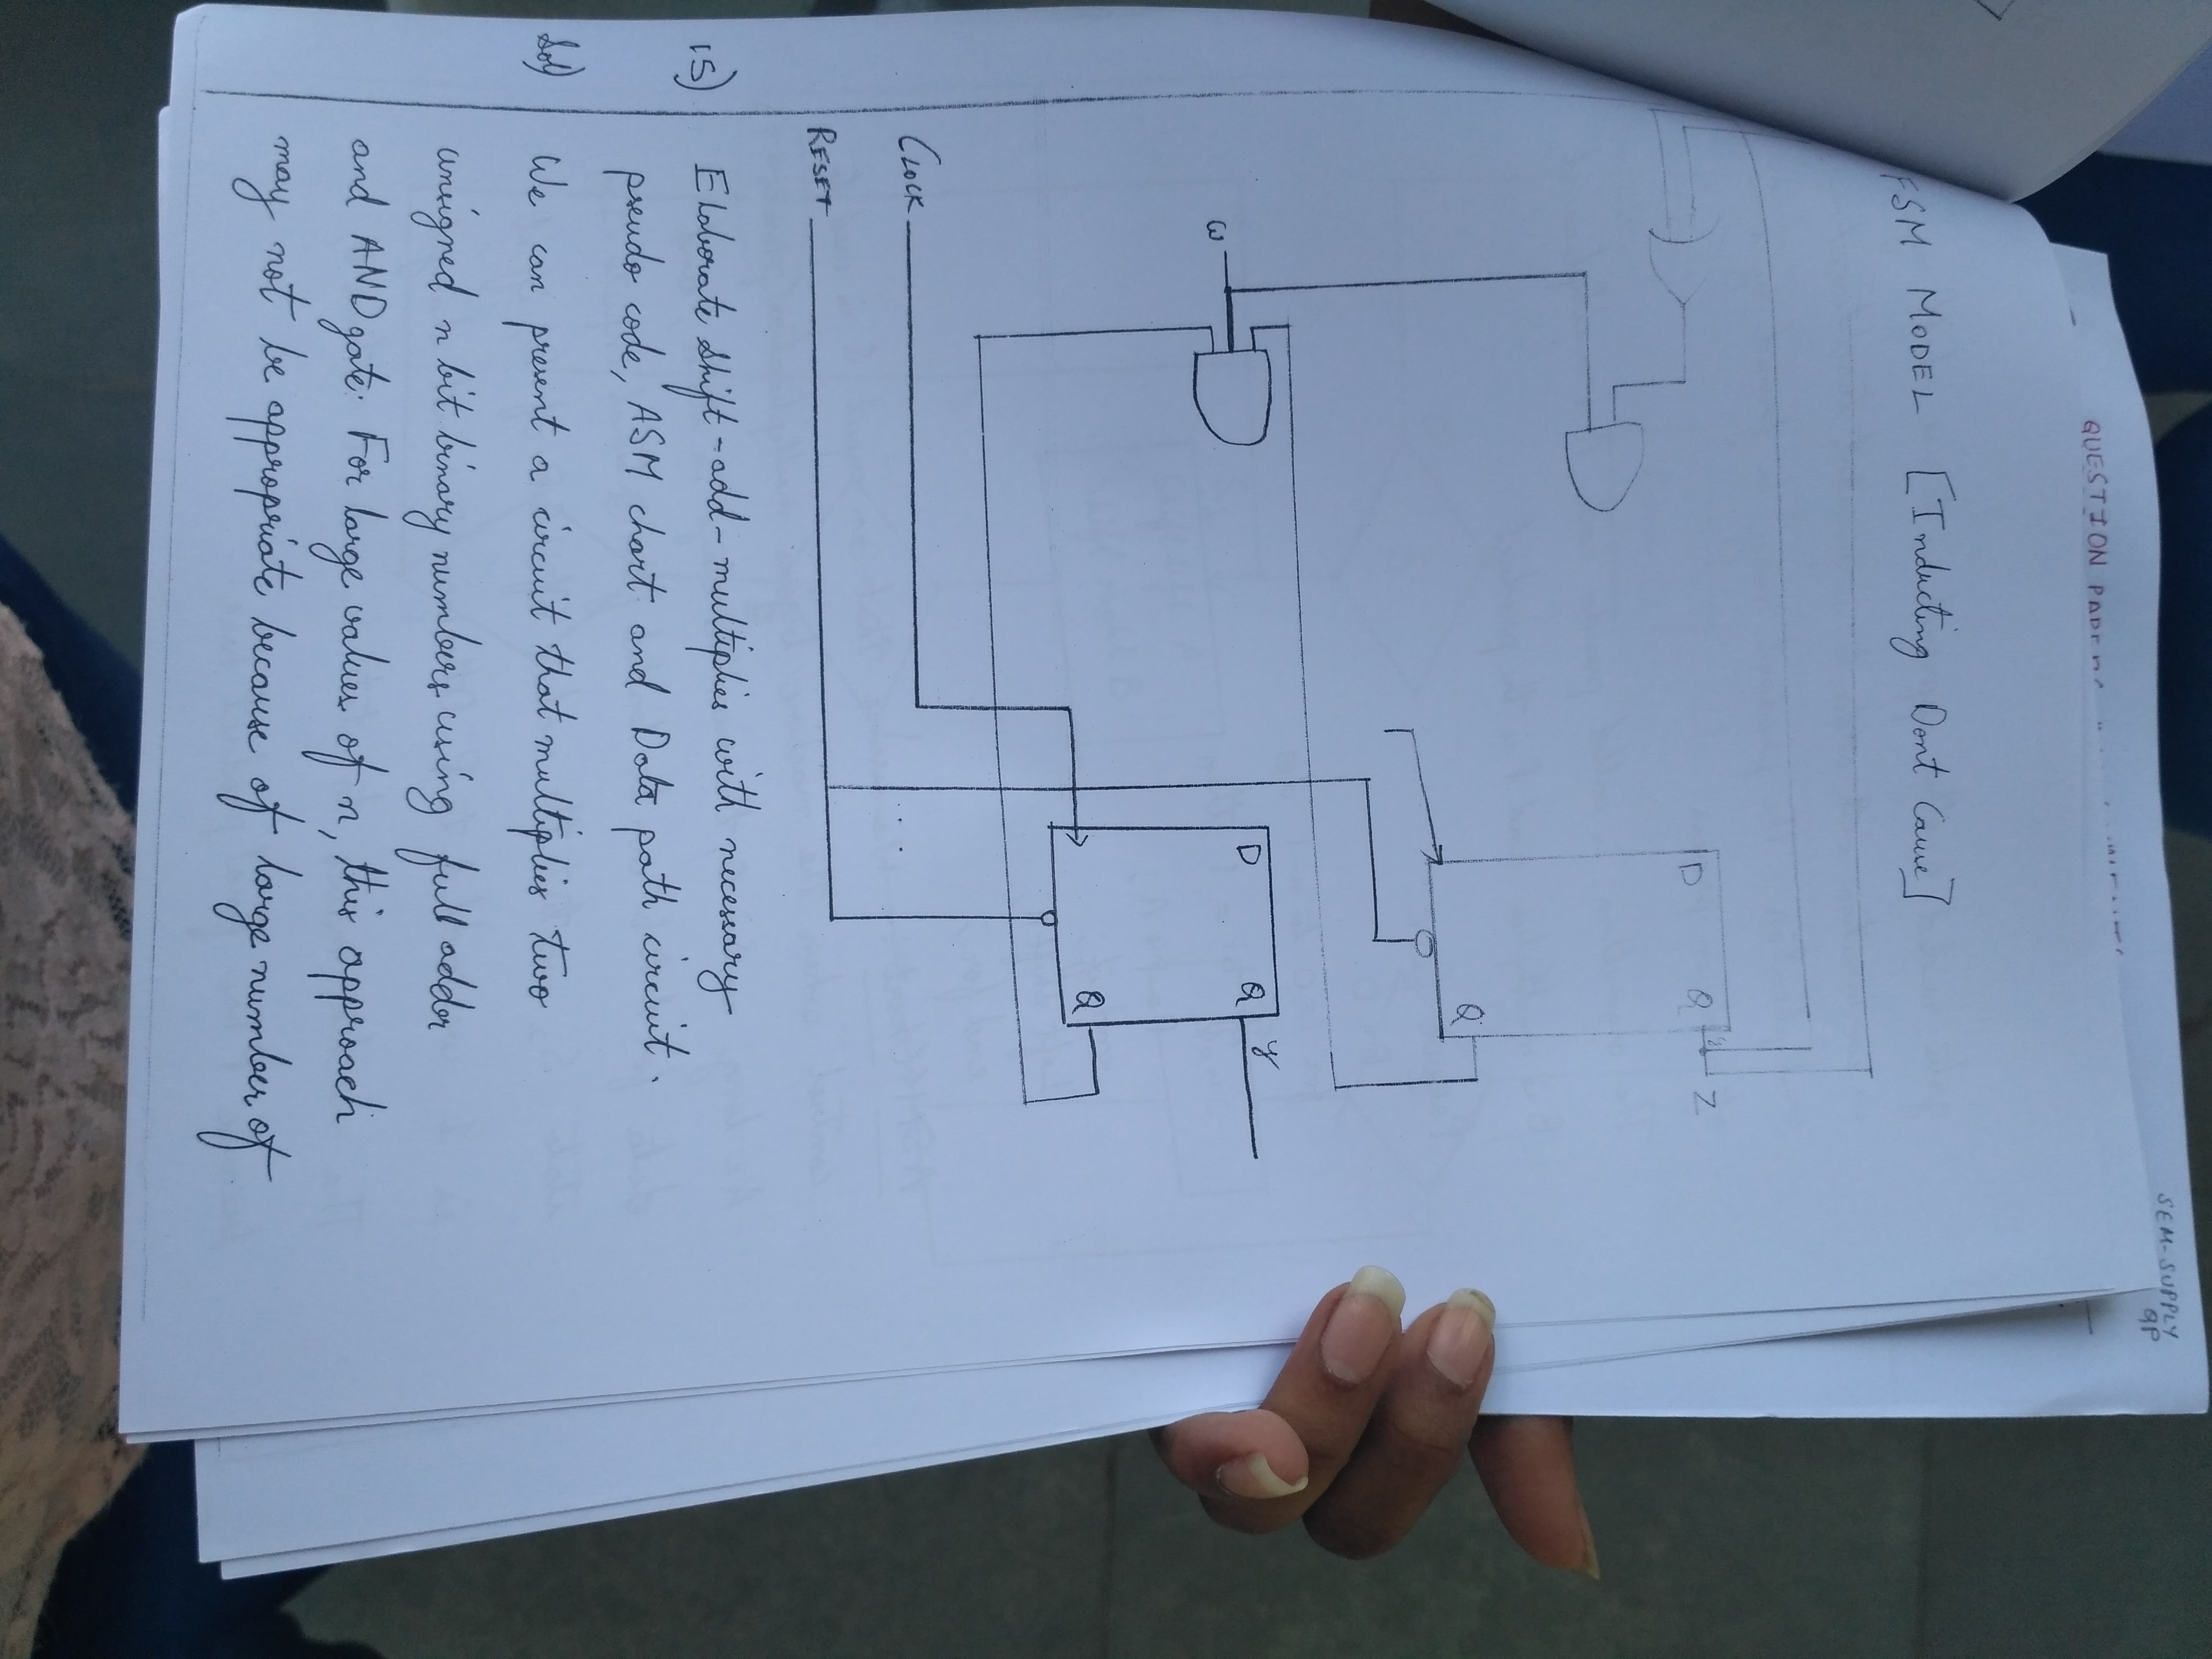 QUESTION
SEM-SUPPLY
QP
FSM MODEL [Inducting Dont Caure]
D Q
Z
Q
w
D Q y
Q
CLOCK
RESET
15) Elaborate shift-add-multiplier with necessary
pseudo code, ASM chart and Data path circuit.
Sol) We can present a circuit that multiplies two
unsigned n bit binary numbers using full adder
and AND gate. For large values of n, this approach
may not be appropriate because of large number of